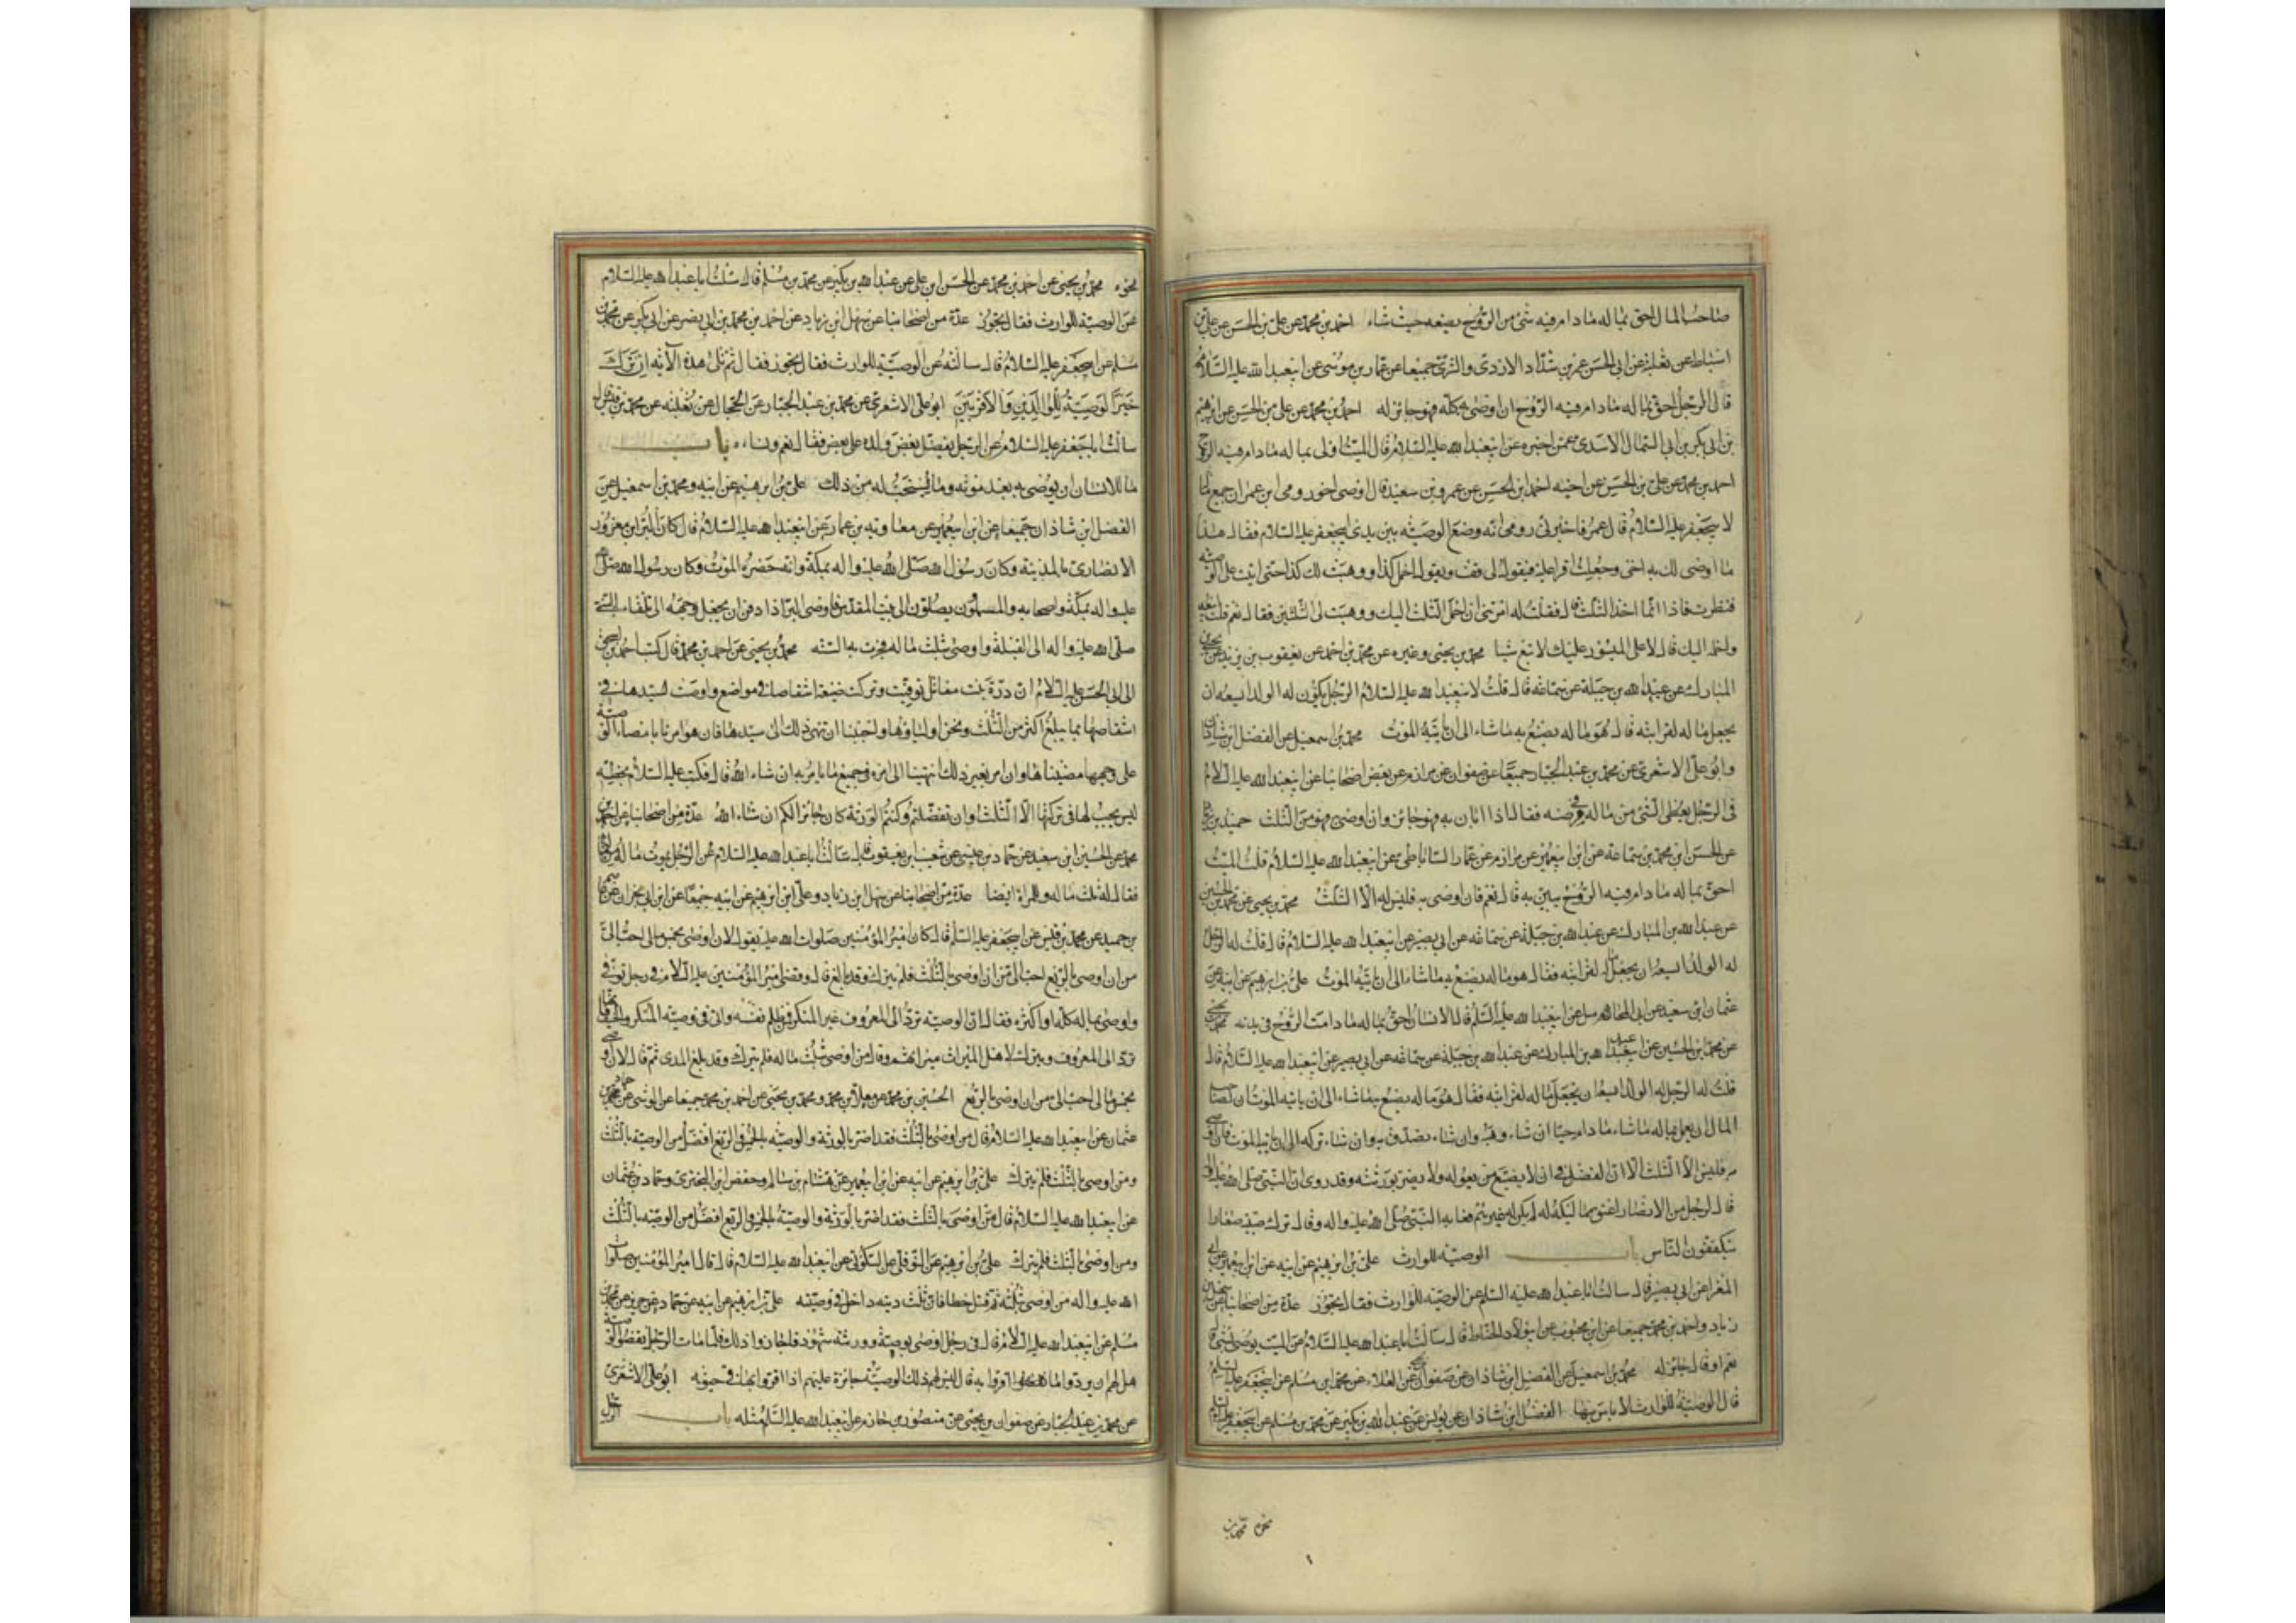 صاحب المال احق بماله ما دام فيه شئ من الروح يضعه حيث شاء احمد بن محمد عن على بن الحسن عن على بن
اسباط عن ثعلبة عن ابى الحسن عمر بن شداد الازدى والسرى جميعا عن عمار بن موسى عن ابيعبد الله عليه السلام
قال الرجل احق بماله ما دام فيه الروح ان اوصى به كله فهو جائز له احمد بن محمد عن على بن الحسن عن ابرهيم
بن ابى بكر بن ابى السمال الاسدى عمن اخبره عن ابيعبد الله عليه السلام قال الميت اولى بماله ما دام فيه الروح
احمد بن محمد عن على بن الحسن عن اخيه احمد ابن الحسن عن عمرو بن سعيد قال اوصى اخو رومى ابن عمران جميع ماله
لابيجعفر عليه السلام قال عمرو فاخبرنى رومى انه وضع الوصية بين يدى ابيجعفر عليه السلام فقال هذا
ما اوصى لك به اخى وجعلت اقرا عليه فيقول لى قف ويقول احمل كذا ووهبت لك كذا حتى اتيت على الوصية
فنظرت فاذا انما اخذ الثلث قال فقلت له امرتنى ان احمل الثلث اليك ووهبت لى الثلثين فقال نعم قلت ابيعه
واحمله اليك قال لا على الميسور عليك لا تبع شيا محمد بن يحيى وغيره عن محمد بن احمد عن يعقوب بن يزيد عن يحيى بن
المبارك عن عبد الله بن جبلة عن سماعة قال قلت لابيعبد الله عليه السلام الرجل يكون له الولد ايسعه ان
يجعل ماله لقرابته قال هو ماله يصنع به ما شاء الى ان ياتيه الموت محمد بن اسمعيل عن الفضل ابن شاذان
وابو على الاشعرى عن محمد بن عبد الجبار جميعا عن صفوان عن مرازم عن بعض اصحابنا عن ابيعبد الله عليه السلام
فى الرجل يعطى الشئ من ماله فى مرضه فقال اذا ابان به فهو جائز وان اوصى به فهو من الثلث حميد بن زياد
عن الحسن ابن محمد بن سماعة عن ابن ابيعمير عن مرازم عن عمار الساباطى عن ابيعبد الله عليه السلام قال قلت الميت
احق بماله ما دام فيه الروح يبين به قال نعم فان اوصى به فليس له الا الثلث محمد بن يحيى عن محمد بن الحسين
عن عبد الله بن المبارك عن عبد الله بن جبلة عن سماعة عن ابى بصير عن ابيعبد الله عليه السلام قال قلت له الرجل
له الولد ايسعه ان يجعل ماله لقرابته فقال هو ماله يصنع به ما شاء الى ان ياتيه الموت على بن ابرهيم عن ابيه عن
عثمان ابن سعيد عن ابى المحامد عن ابيعبد الله عليه السلم قال الانسان احق بماله ما دامت الروح فى بدنه محمد بن يحيى
عن محمد ابن الحسين عن عبد الله بن المبارك عن عبد الله بن جبلة عن سماعة عن ابى بصير عن ابيعبد الله عليه السلام قال
قلت له الرجل له الولد ايسعه ان يجعل ماله لقرابته فقال هو ماله يصنع به ما شاء الى ان ياتيه الموت ان لصاحب
المال ان يعمل بماله ما شاء ما دام حيا ان شاء وهبه وان شاء تصدق به وان شاء تركه الى ان ياتيه الموت فان اوصى
به فليس الا الثلث الا ان الفضل فى ان لا يضيع من يعوله ولا يضر بورثته وقد روى ان النبى صلى الله عليه واله
قال لرجل من الانصار اعتق مماليك له لم يكن له غيرهم فعابه النبى صلى الله عليه واله وقال ترك صبية صغارا
يتكففون الناس باب الوصية للوارث على بن ابرهيم عن ابيه عن ابن ابيعمير عن ابى
المغرا عن ابى بصير قال سالت ابا عبد الله عليه السلم عن الوصية للوارث فقال تجوز عدة من اصحابنا عن سهل بن
زياد واحمد بن محمد جميعا عن ابن محبوب عن ابى ولاد الحناط قال سالت ابا عبد الله عليه السلام عن الميت يوصى للبنت بشئ قال
نعم او قال جائز له محمد بن اسمعيل عن الفضل ابن شاذان عن صفوان عن العلاء عن محمد ابن مسلم عن ابيجعفر عليه السلم
قال الوصية للوارث لا باس بها الفضل ابن شاذان عن يونس عن عبد الله بن بكير عن محمد بن مسلم عن ابيجعفر عليه السلم
نحوه
نحوه محمد بن يحيى عن احمد بن محمد عن الحسن ابن على عن عبد الله بن بكير عن محمد بن مسلم قال سئلت ابا عبد الله عليه السلام
عن الوصية للوارث فقال تجوز عدة من اصحابنا عن سهل ابن زياد عن احمد بن محمد بن ابى نصر عن ابن بكير عن محمد بن
مسلم عن ابيجعفر عليه السلام قال سالته عن الوصية للوارث فقال تجوز فقال ثم تلى هذه الآية ان ترك
خيرا الوصية للوالدين والاقربين ابو على الاشعرى عن محمد بن عبد الجبار عن الحجال عن ثعلبة عن محمد بن قيس قال
سالت ابا جعفر عليه السلام عن الرجل يفضل بعض ولده على بعض فقال نعم ونساءه باب
ما للانسان ان يوصى به بعد موته وما يستحب له من ذلك على بن ابرهيم عن ابيه ومحمد بن اسمعيل عن
الفضل ابن شاذان جميعا عن ابن ابيعمير عن معاوية بن عمار عن ابيعبد الله عليه السلام قال كان البرا ابن معرور
الانصارى بالمدينة وكان رسول الله صلى الله عليه واله بمكة وانه حضره الموت وكان رسول الله صلى الله
عليه واله بمكة واصحابه والمسلمون يصلون الى بيت المقدس فاوصى البرا اذا دفن ان يجعل وجهه الى تلقاء النبى
صلى الله عليه واله الى القبلة واوصى بثلث ماله فجرت به السنة محمد بن يحيى عن احمد بن محمد قال كتب احمد بن اسحق
الى ابى الحسن عليه السلام ان درة بنت مقاتل توفيت وتركت ضيعة اشقاصا فى مواضع واوصت لسيدها فى
اشقاصها بما يبلغ اكثر من الثلث ونحن اوصياؤها واحببنا ان ننهى ذلك الى سيدنا فان هو امرنا بامضاء الوصية
على وجهها امضيناها وان امر بغير ذلك انتهينا الى امره فى جميع ما يامر به ان شاء الله قال فكتب عليه السلام بخطه
ليس يجب لها فى تركتها الا الثلث وان تفضلتم وكنتم الورثة كان جائزا لكم ان شاء الله عدة من اصحابنا عن احمد بن
محمد عن الحسين ابن سعيد عن حماد بن عيسى عن شعيب ابن يعقوب قال سالت ابا عبد الله عليه السلام عن الرجل يموت ما له من ماله
فقال له ثلث ماله وللمراة ايضا عدة من اصحابنا عن سهل ابن زياد وعلى ابن ابرهيم عن ابيه جميعا عن ابن ابى نجران عن عاصم
بن حميد عن محمد بن قيس عن ابيجعفر عليه السلم قال كان امير المؤمنين صلوات الله عليه يقول لان اوصى بخمس مالى احب الى
من ان اوصى بالربع ولان اوصى بالربع احب الى من ان اوصى بالثلث ومن اوصى بالثلث فلم يترك وقد بالغ قال وقضى امير المؤمنين عليه السلام فى رجل توفى
واوصى بماله كله او اكثره فقال ان الوصية ترد الى المعروف غير المنكر فمن ظلم نفسه واتى فى وصيته المنكر والحيف فانها
ترد الى المعروف ويترك لاهل الميراث ميراثهم وقال من اوصى بثلث ماله فلم يترك وقد بلغ المدى ثم قال لان اوصى
بخمس مالى احب الى من ان اوصى بالربع الحسين بن محمد عن معلى بن محمد ومحمد بن يحيى عن احمد بن محمد جميعا عن الوشا عن حماد بن
عثمان عن ابيعبد الله عليه السلام قال من اوصى بالثلث فقد اضر بالورثة والوصية بالخمس والربع افضل من الوصية بالثلث
ومن اوصى بالثلث فلم يترك على بن ابرهيم عن ابيه عن ابن ابيعمير عن هشام بن سالم وحفص ابن البخترى وحماد بن عثمان
عن ابيعبد الله عليه السلام قال من اوصى بالثلث فقد اضر بالورثة والوصية بالخمس والربع افضل من الوصية بالثلث
ومن اوصى بالثلث فلم يترك على بن ابرهيم عن ابيه عن النوفلى عن السكونى عن ابيعبد الله عليه السلام قال قال امير المؤمنين صلوات
الله عليه واله من اوصى بثلثه ثم قتل خطا فان ثلث ديته داخل فى وصيته على بن ابرهيم عن ابيه عن حماد عن حريز عن محمد بن
مسلم عن ابيعبد الله عليه السلام قال فى رجل اوصى بوصية وورثته شهود فاجازوا ذلك فلما مات الرجل نقضوا الوصية
هل لهم ان يردوا ما اقروا به قال ليس لهم ذلك الوصية جائزة عليهم اذا اقروا بها فى حيوته ابو على الاشعرى
عن محمد بن عبد الجبار عن صفوان بن يحيى عن منصور بن حازم عن ابيعبد الله عليه السلم مثله باب